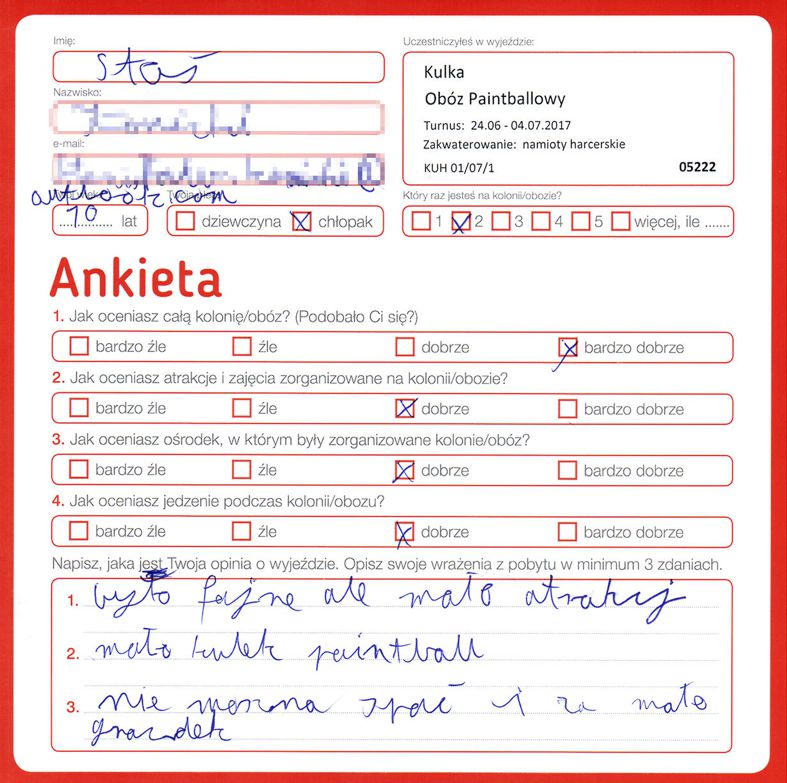 Imię:
Staś
Uczestniczyłeś w wyjeździe:
Kulka
Obóz Paintballowy
Turnus: 24.06 - 04.07.2017
Zakwaterowanie: namioty harcerskie
KUH 01/07/1 05222
Nazwisko:
e-mail:
@
outlook.com
10 lat
dziewczyna chłopak
Który raz jesteś na kolonii/obozie?
1 2 3 4 5 więcej, ile .......
Ankieta
1. Jak oceniasz całą kolonię/obóz? (Podobało Ci się?)
bardzo źle źle dobrze bardzo dobrze
2. Jak oceniasz atrakcje i zajęcia zorganizowane na kolonii/obozie?
bardzo źle źle dobrze bardzo dobrze
3. Jak oceniasz ośrodek, w którym były zorganizowane kolonie/obóz?
bardzo źle źle dobrze bardzo dobrze
4. Jak oceniasz jedzenie podczas kolonii/obozu?
bardzo źle źle dobrze bardzo dobrze
Napisz, jaka jest Twoja opinia o wyjeździe. Opisz swoje wrażenia z pobytu w minimum 3 zdaniach.
1. było fajne ale mało atrakcj
2. mało kulek paintball
3. nie morzna spać i za mało